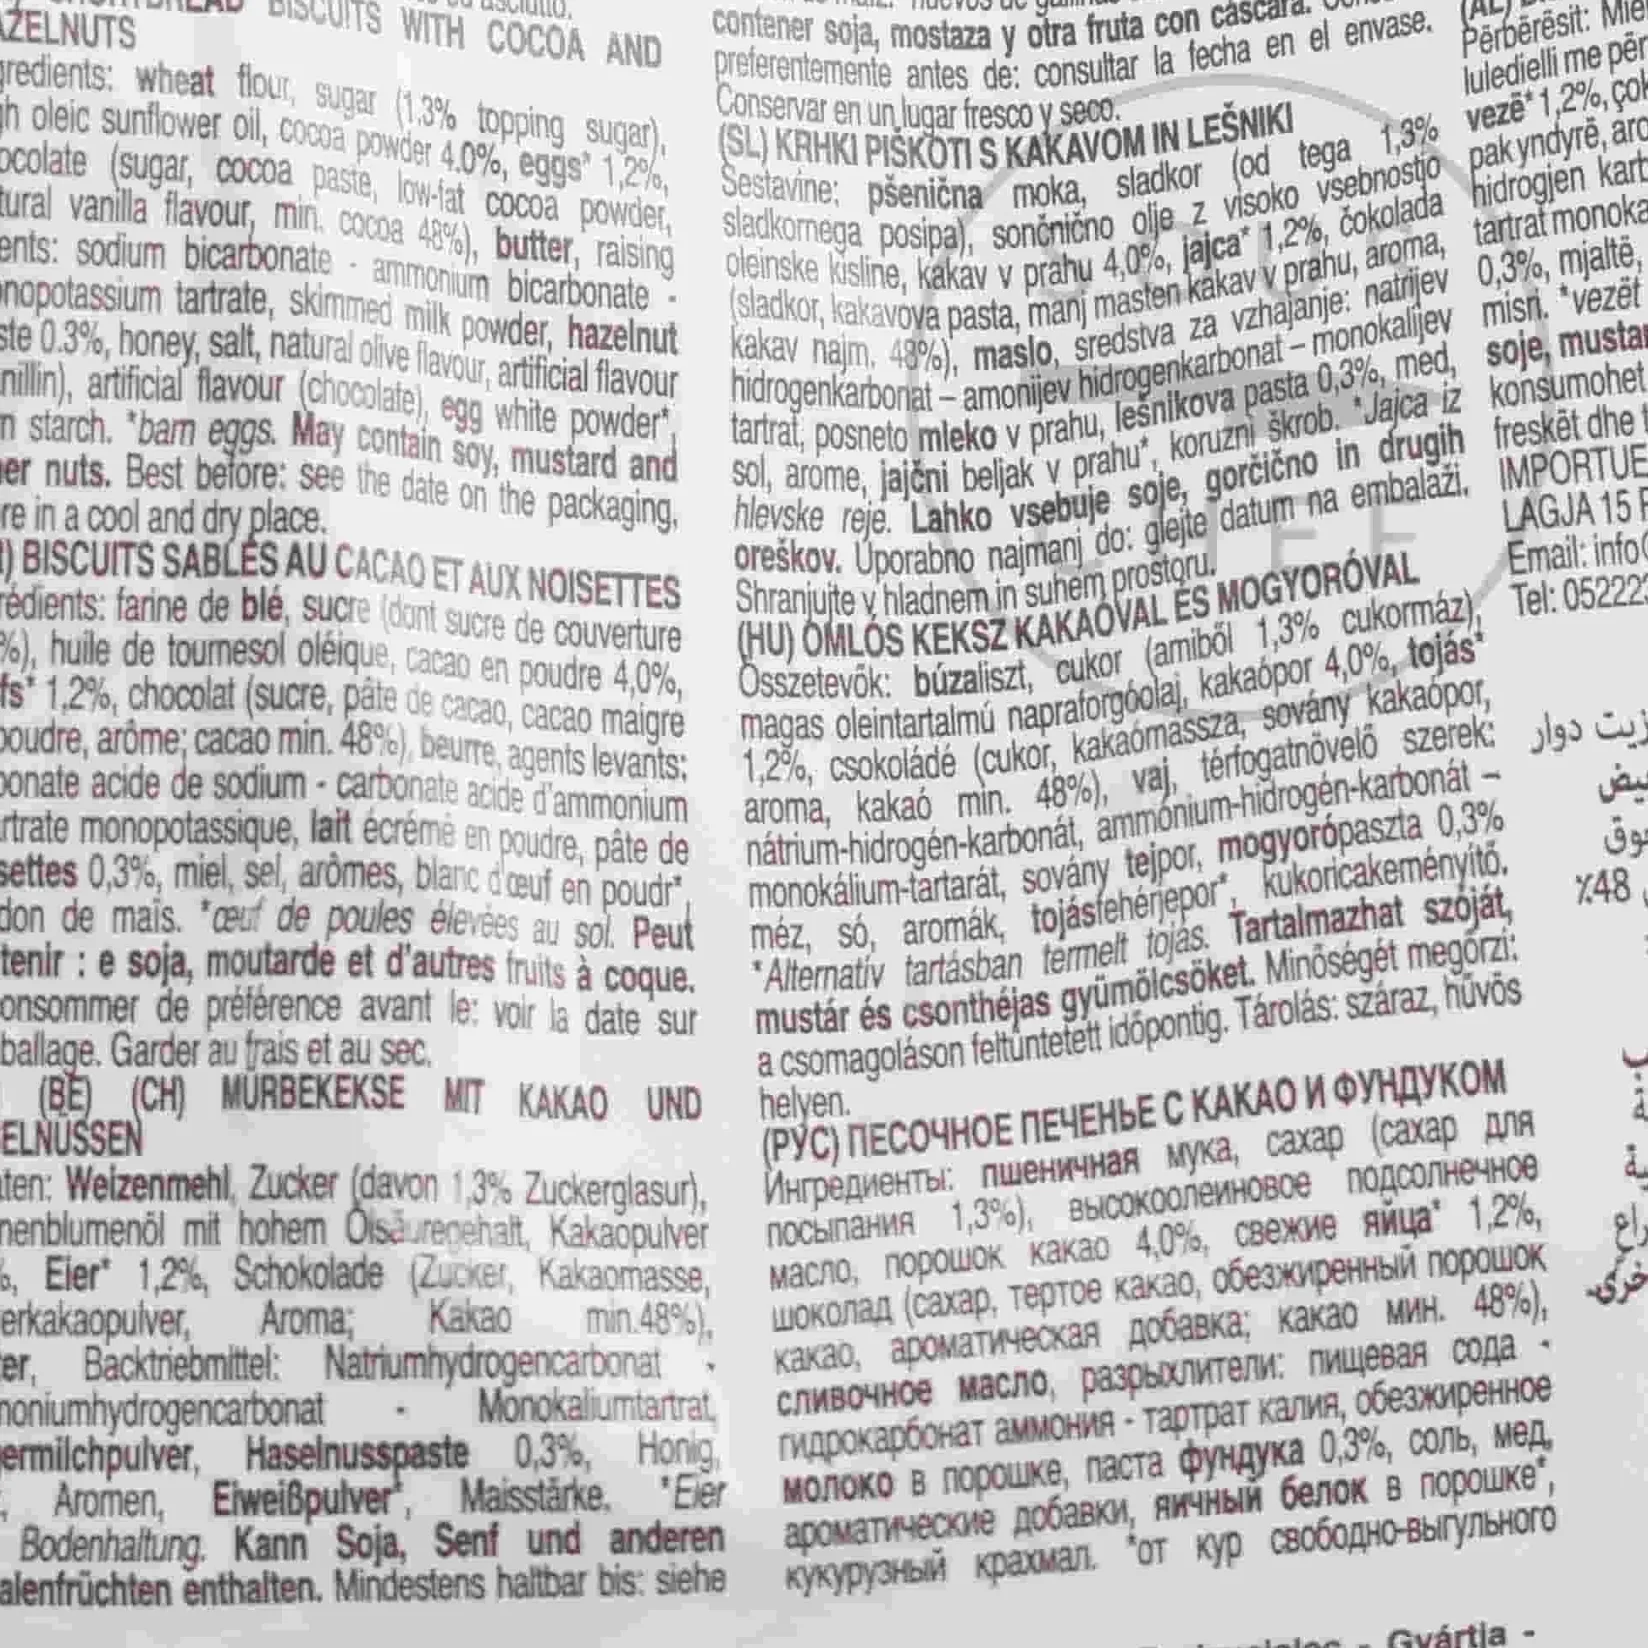 BISCUITS WITH COCOA AND
AZELNUTS
gredients: wheat flour, sugar (1.3% topping sugar),
gh oleic sunflower oil, cocoa powder 4.0%, eggs* 1,2%,
ocolate (sugar, cocoa paste, low-fat cocoa powder,
tural vanilla flavour, min. cocoa 48%), butter, raising
ents: sodium bicarbonate - ammonium bicarbonate -
onopotassium tartrate, skimmed milk powder, hazelnut
ste 0.3%, honey, salt, natural olive flavour, artificial flavour
nillin), artificial flavour (chocolate), egg white powder*,
n starch. *barn eggs. May contain soy, mustard and
her nuts. Best before: see the date on the packaging.
re in a cool and dry place.
) BISCUITS SABLÉS AU CACAO ET AUX NOISETTES
rédients: farine de blé, sucre (dont sucre de couverture
%), huile de tournesol oléique, cacao en poudre 4,0%,
fs* 1,2%, chocolat (sucre, pâte de cacao, cacao maigre
poudre, arôme; cacao min. 48%), beurre, agents levants:
bonate acide de sodium - carbonate acide d'ammonium
rtrate monopotassique, lait écrémé en poudre, pâte de
settes 0,3%, miel, sel, arômes, blanc d'œuf en poudr*,
don de maïs. *œuf de poules élevées au sol. Peut
tenir : e soja, moutarde et d'autres fruits à coque.
onsommer de préférence avant le: voir la date sur
ballage. Garder au frais et au sec.
(BE) (CH) MÜRBEKEKSE MIT KAKAO UND
ELNÜSSEN
ten: Weizenmehl, Zucker (davon 1,3% Zuckerglasur),
nenblumenöl mit hohem Ölsäuregehalt, Kakaopulver
%, Eier* 1,2%, Schokolade (Zucker, Kakaomasse,
erkakaopulver, Aroma; Kakao min.48%),
er, Backtriebmittel: Natriumhydrogencarbonat -
moniumhydrogencarbonat - Monokaliumtartrat,
germilchpulver, Haselnusspaste 0,3%, Honig,
, Aromen, Eiweißpulver*, Maisstärke. *Eier
Bodenhaltung. Kann Soja, Senf und anderen
alenfrüchten enthalten. Mindestens haltbar bis: siehe
contener soja, mostaza y otra fruta con cáscara.
preferentemente antes de: consultar la fecha en el envase.
Conservar en un lugar fresco y seco.
(SL) KRHKI PIŠKOTI S KAKAVOM IN LEŠNIKI
Sestavine: pšenična moka, sladkor (od tega 1,3%
sladkornega posipa), sončnično olje z visoko vsebnostjo
oleinske kisline, kakav v prahu 4,0%, jajca* 1,2%, čokolada
(sladkor, kakavova pasta, manj masten kakav v prahu, aroma,
kakav najm. 48%), maslo, sredstva za vzhajanje: natrijev
hidrogenkarbonat – amonijev hidrogenkarbonat – monokalijev
tartrat, posneto mleko v prahu, lešnikova pasta 0,3%, med,
sol, arome, jajčni beljak v prahu*, koruzni škrob. *Jajca iz
hlevske reje. Lahko vsebuje soje, gorčično in drugih
oreškov. Uporabno najmanj do: glejte datum na embalaži.
Shranjujte v hladnem in suhem prostoru.
(HU) OMLÓS KEKSZ KAKAÓVAL ÉS MOGYORÓVAL
Összetevők: búzaliszt, cukor (amiből 1,3% cukormáz),
magas oleintartalmú napraforgóolaj, kakaópor 4,0%, tojás*
1,2%, csokoládé (cukor, kakaómassza, sovány kakaópor,
aroma, kakaó min. 48%), vaj, térfogatnövelő szerek:
nátrium-hidrogén-karbonát, ammónium-hidrogén-karbonát –
monokálium-tartarát, sovány tejpor, mogyorópaszta 0,3%
méz, só, aromák, tojásfehérjepor*, kukoricakeményítő.
*Alternatív tartásban termelt tojás. Tartalmazhat szóját,
mustár és csonthéjas gyümölcsöket. Minőségét megőrzi:
a csomagoláson feltüntetett időpontig. Tárolás: száraz, hűvös
helyen.
(РУС) ПЕСОЧНОЕ ПЕЧЕНЬЕ С КАКАО И ФУНДУКОМ
Ингредиенты: пшеничная мука, сахар (сахар для
посыпания 1,3%), высокоолеиновое подсолнечное
масло, порошок какао 4,0%, свежие яйца* 1,2%,
шоколад (сахар, тертое какао, обезжиренный порошок
какао, ароматическая добавка; какао мин. 48%),
сливочное масло, разрыхлители: пищевая сода -
гидрокарбонат аммония - тартрат калия, обезжиренное
молоко в порошке, паста фундука 0,3%, соль, мед,
ароматические добавки, яичный белок в порошке*,
кукурузный крахмал. *от кур свободно-выгульного
Gyártja -
Përbërësit:
luledielli me për
vezë* 1,2%, çok
pak yndyrë, aro
hidrogjen karb
tartrat monoka
0,3%, mjaltë,
misri. *vezët
soje, mustar
konsumohet
freskët dhe
IMPORTUE
LAGJA 15
Email: info@
Tel: 05222
زيت دوار
٪48